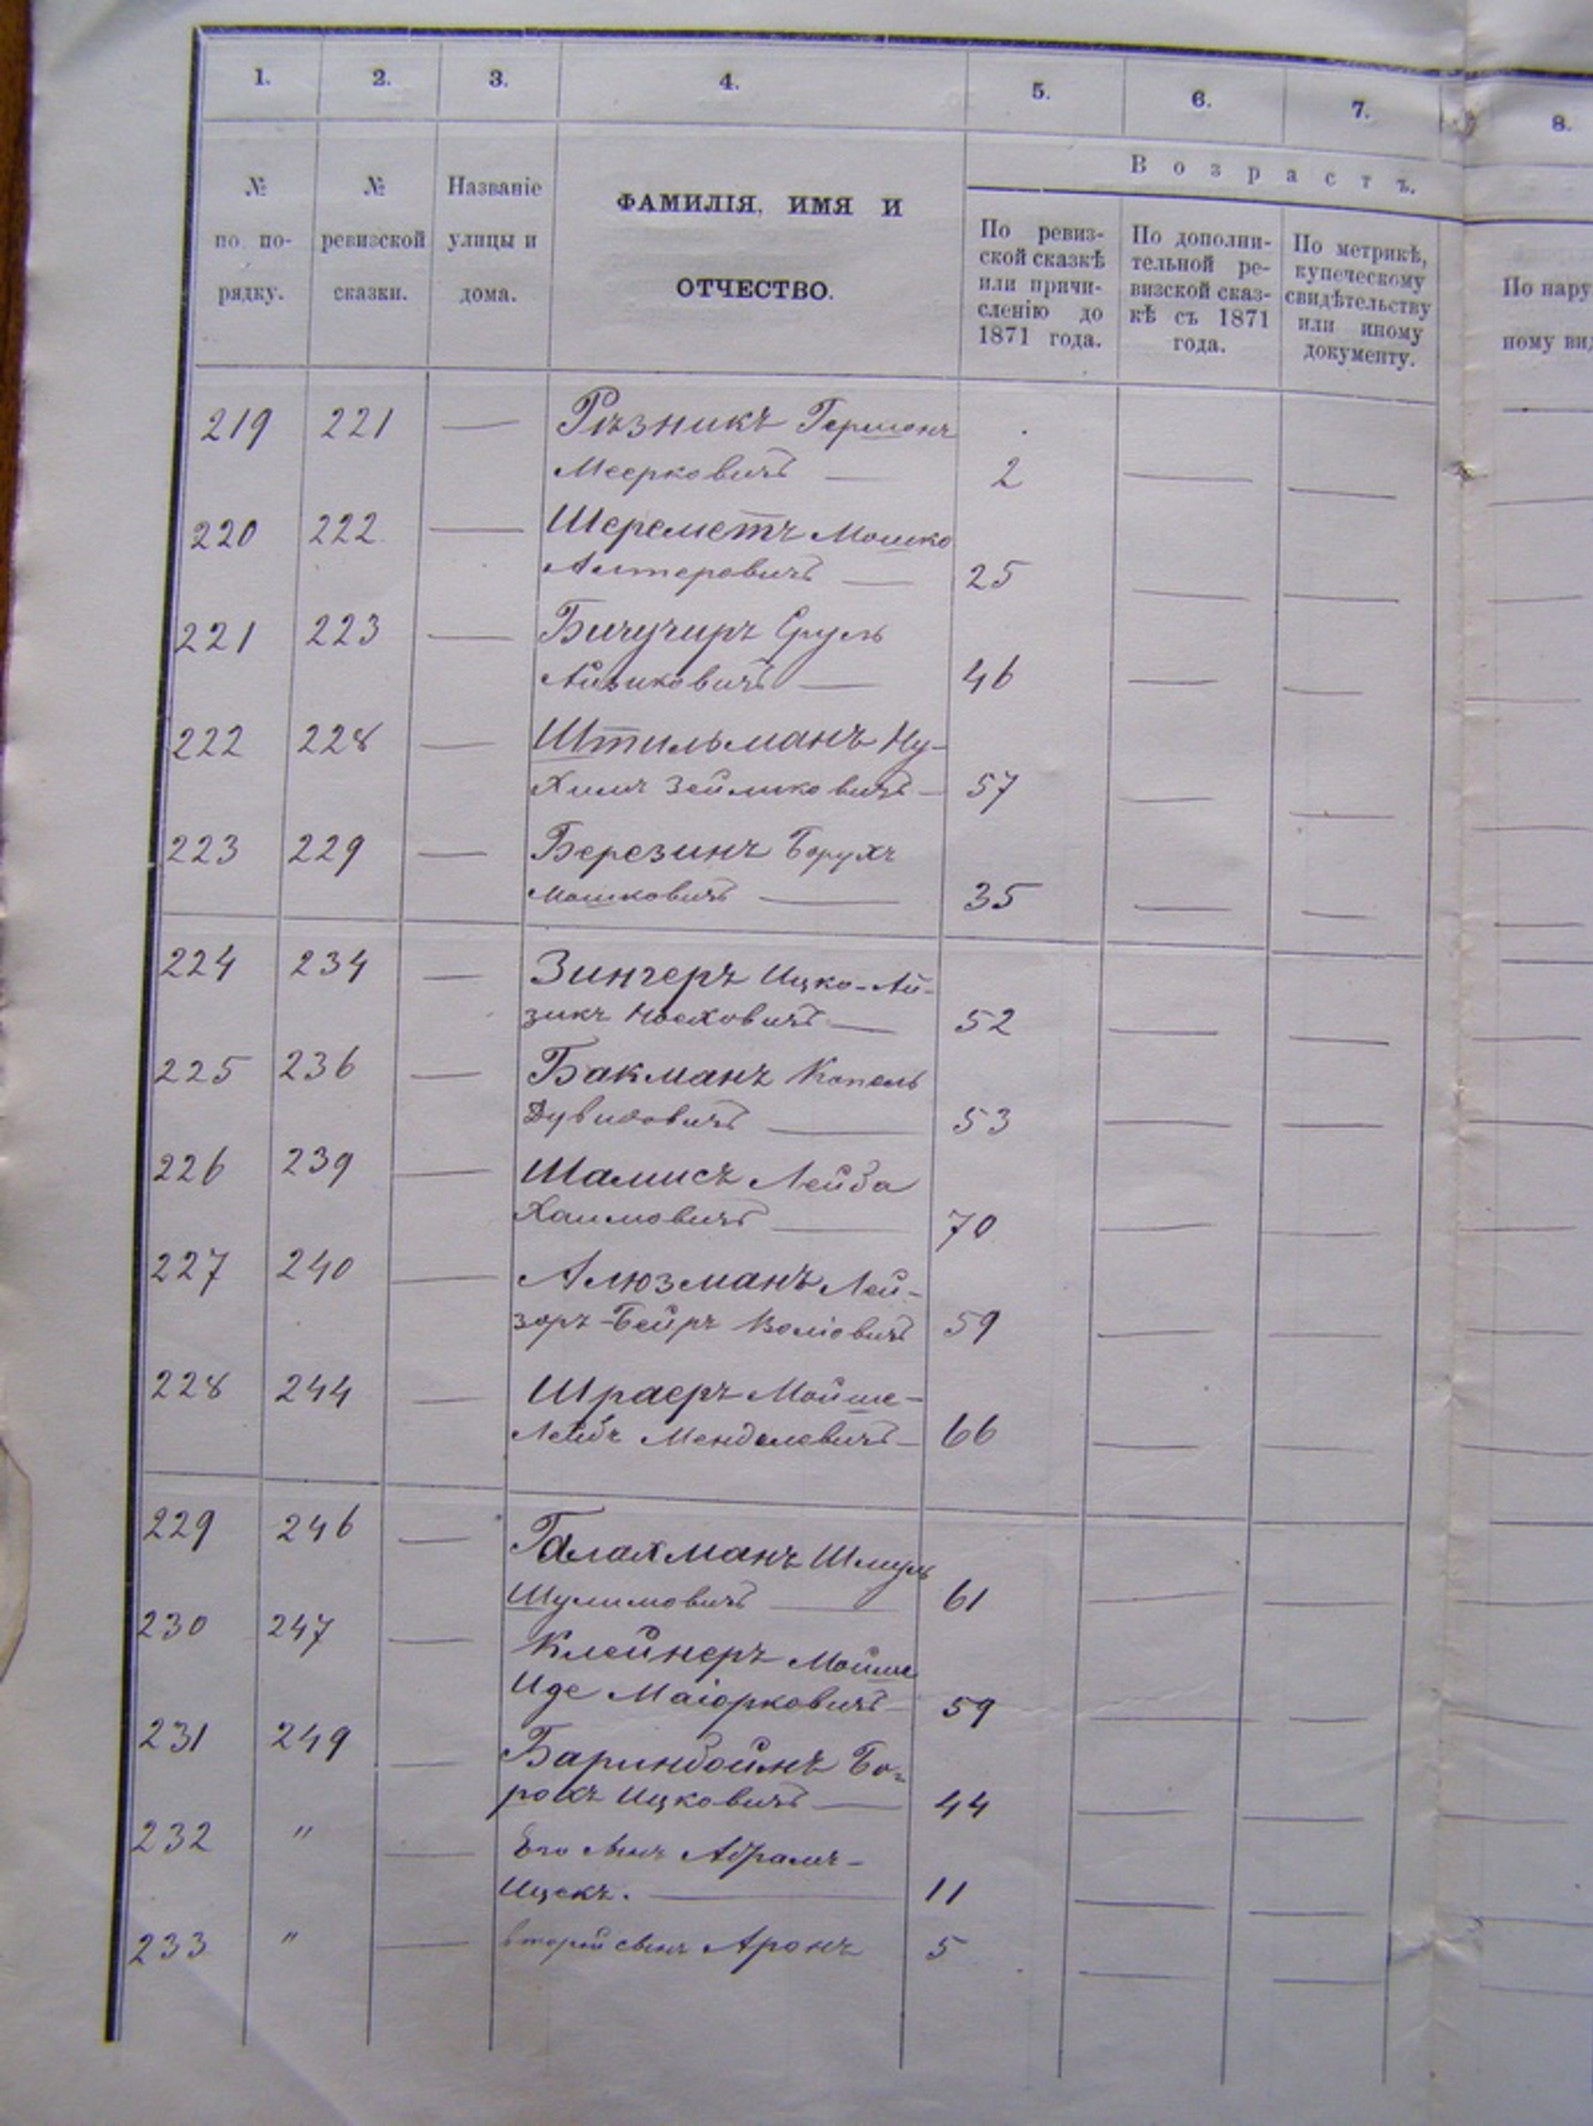 1. 2. 3. 4. 5. 6. 7. 8.
В о з р а с т ъ.
№ по по-рядку.
№ ревизской сказки.
Названіе улицы и дома.
ФАМИЛІЯ, ИМЯ И
ОТЧЕСТВО.
По ревиз-
ской сказкѣ
или причи-
сленію до
1871 года.
По дополни-
тельной ре-
визской сказ-
кѣ съ 1871
года.
По метрикѣ,
купеческому
свидѣтельству
или иному
документу.
По нару
ному вид
219 221 — Рѣзникъ Гершонъ
Меерковичъ — 2 — —
220 222 — Шереметъ Мошко
Алтеровичъ — 25 — —
221 223 — Бичучиръ Сруль
Айзиковичъ — 46 — —
222 228 — Штильманъ Ну-
химъ Зейликовичъ — 57 — —
223 229 — Березинъ Борухъ
Мошковичъ — 35 — —
224 234 — Зингеръ Ицко-Ай-
зикъ Ноеховичъ — 52 — —
225 236 — Бакманъ Копель
Дувидовичъ — 53 — —
226 239 — Шамисъ Лейба
Хаимовичъ — 70 — —
227 240 — Алюзманъ Лей-
зоръ-Бейръ Воліовичъ 59 — —
228 244 — Шраеръ Мойше-
Лейбъ Менделевичъ — 66 — —
229 246 — Галахманъ Шмуль
Шулимовичъ — 61 — —
230 247 — Клейнеръ Мойше
Иде Маіорковичъ — 59 — —
231 249 — Баринбоймъ Бо-
рохъ Ицковичъ — 44 — —
232 " — Его сынъ Абрамъ-
Ицекъ. — 11 — —
233 " — второй сынъ Аронъ 5 — —